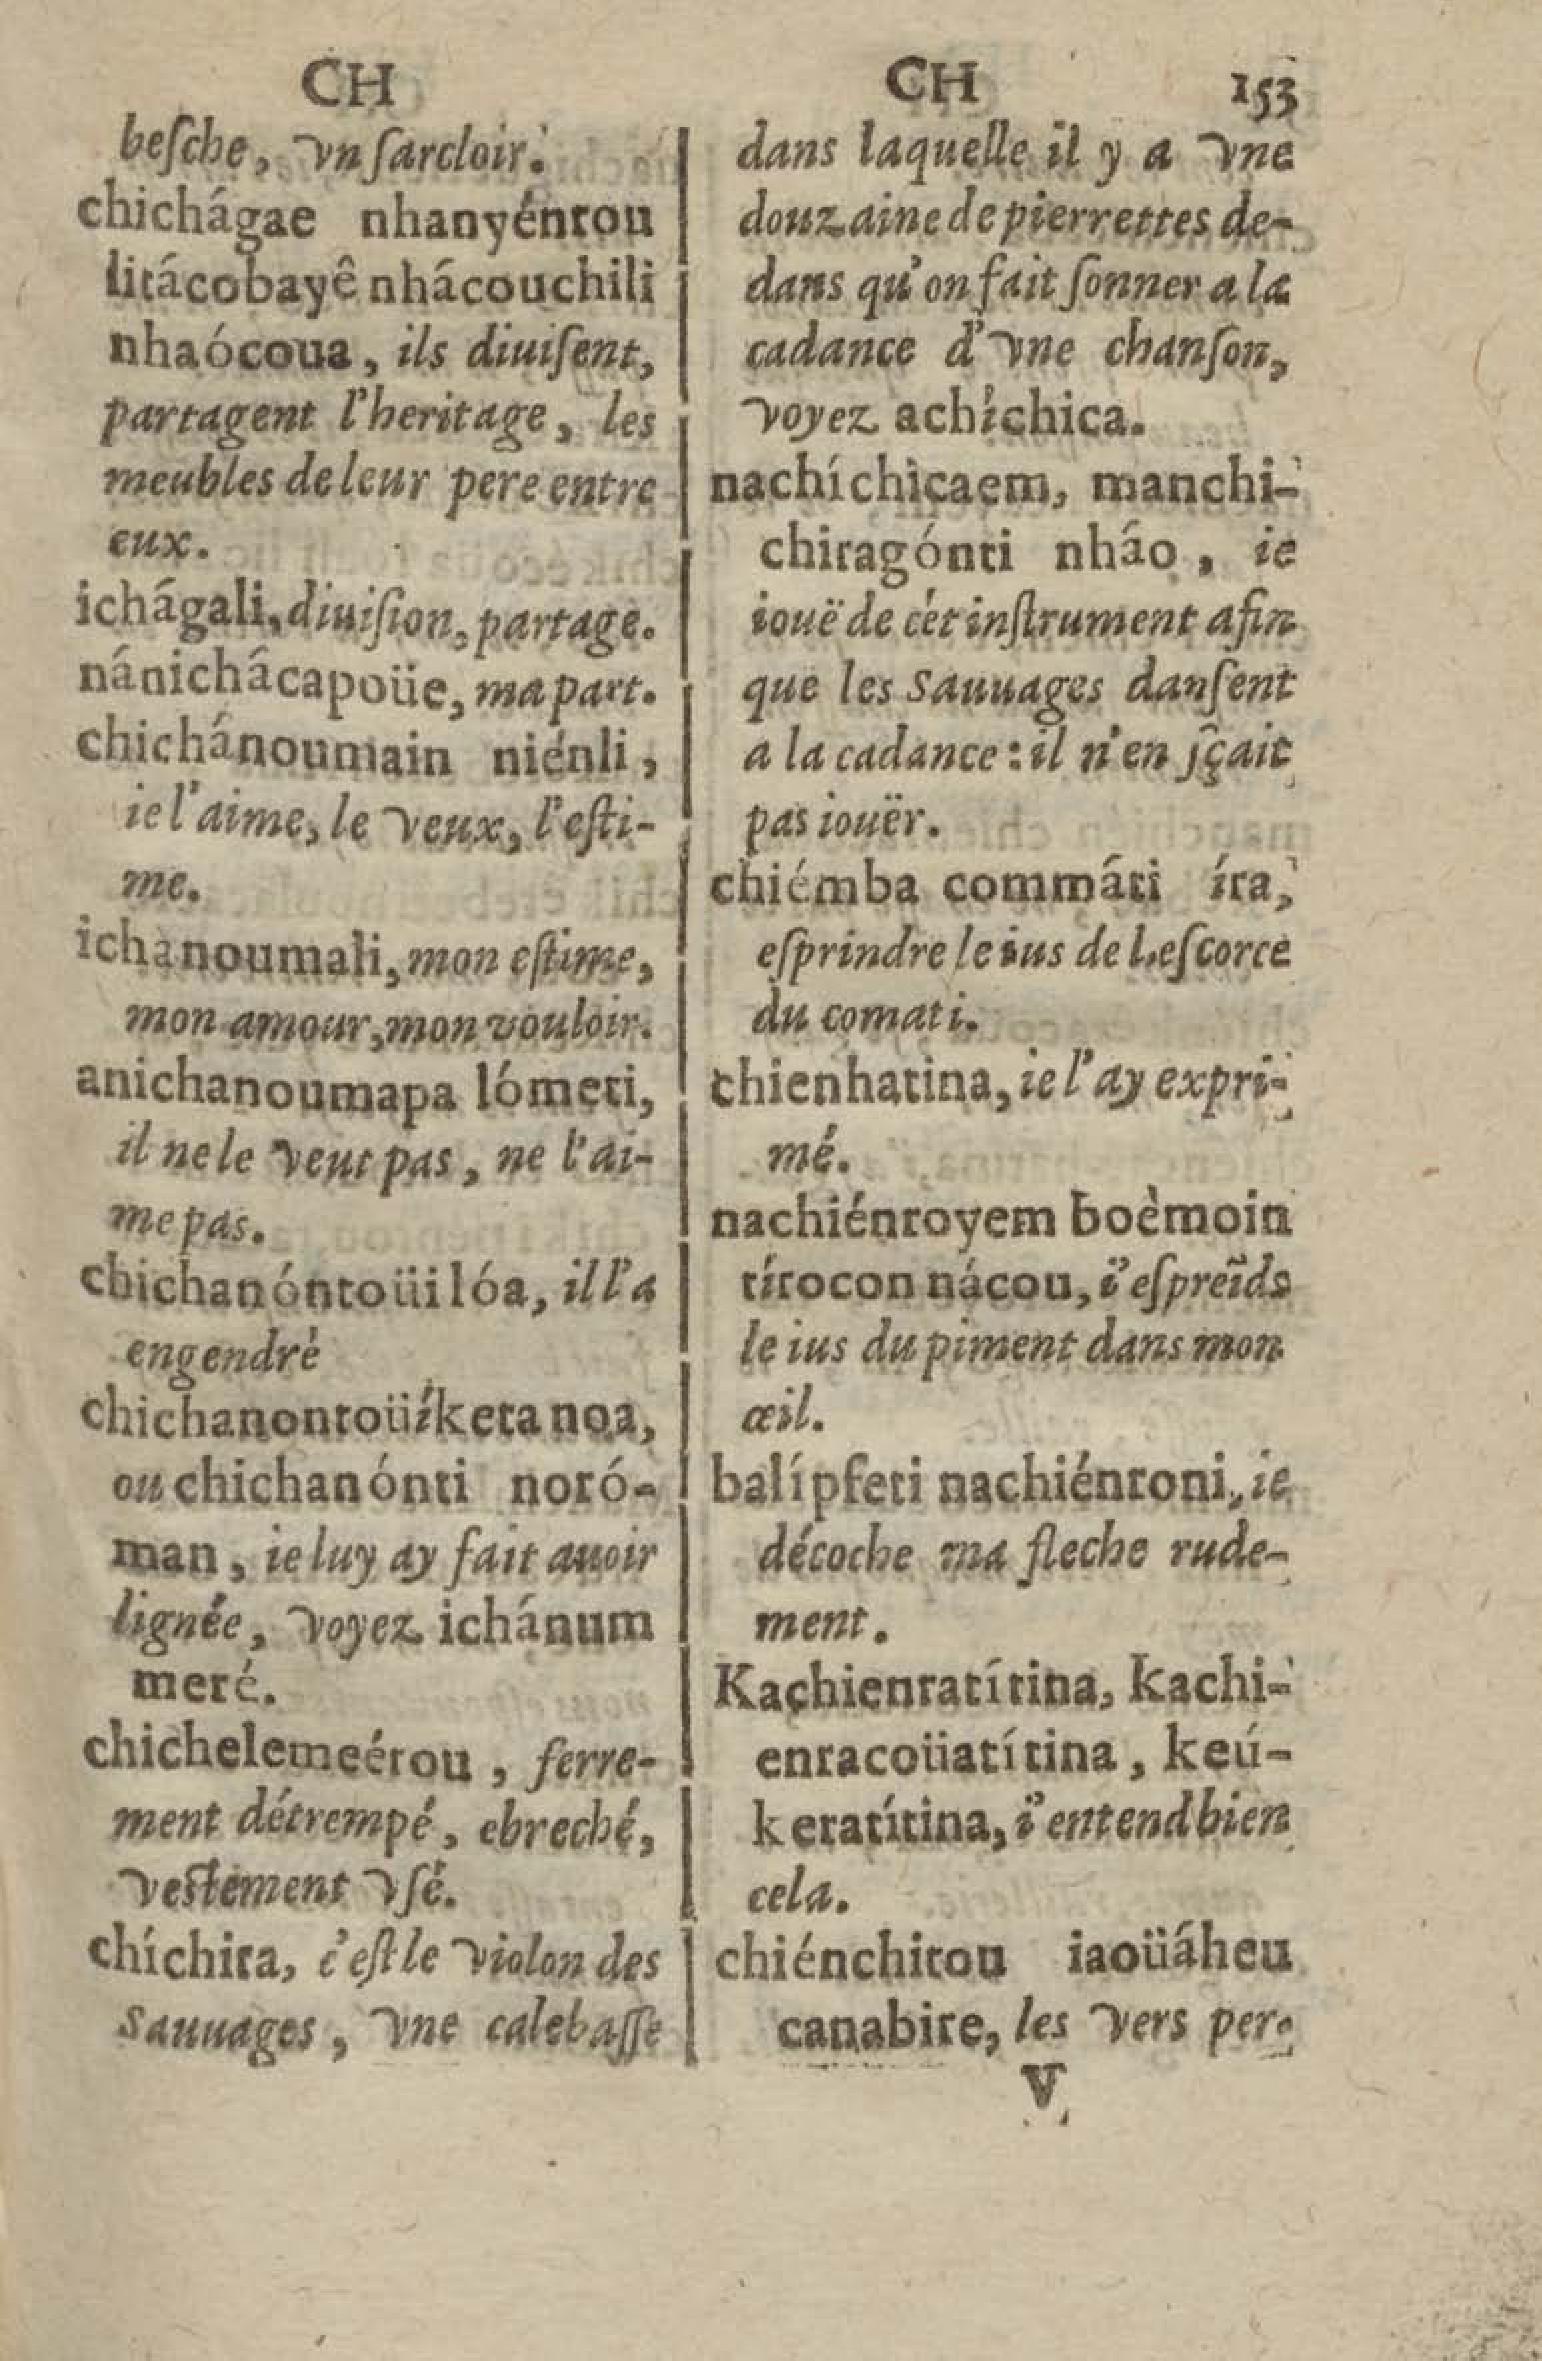 CH
beſche, vn ſarcloir.
chichágae nhanyénrou
litácobayê nhácouchili
nhaócoua, ils diuiſent,
partagent l'heritage, les
meubles de leur pere entre
eux.
ichágali, diuiſion, partage.
nánichácapoüe, ma part.
chichánoumain niénli,
ie l'aime, le veux, l'eſti-
me.
ichanoumali, mon eſtime,
mon amour, mon vouloir.
anichanoumapa lómeti,
il ne le veut pas, ne l'ai-
me pas.
chichanóntoüi lóa, il l'a
engendré
chichanontoüíketa noa,
ou chichanónti noró-
man, ie luy ay fait auoir
lignée, voyez ichánum
meré.
chichelemeérou, ferre-
ment détrempé, ebreché,
veſtement vſé.
chíchira, c'eſt le violon des
Sauuages, vne calebaſſe
CH 153
dans laquelle il y a vne
douzaine de pierrettes de-
dans qu'on fait ſonner a la
cadance d'vne chanſon,
voyez achíchica.
nachíchicaem, manchi-
chiragónti nháo, ie
iouë de cét inſtrument afin
que les Sauuages danſent
a la cadance: il n'en ſçait
pas iouër.
chiémba commáti íra,
eſprindre le ius de l,eſcorce
du comati.
chienhatina, ie l'ay expri-
mé.
nachiénroyem boèmoin
tírocon nácou, i'eſpreĩds
le ius du piment dans mon
œil.
balípfeti nachiénroni, ie
décoche ma fleche rude-
ment.
Kachienratítina, kachi-
enracoüatítina, keú-
keratítina, i'entend bien
cela.
chiénchitou iaoüáheu
canabire, les vers per-
V